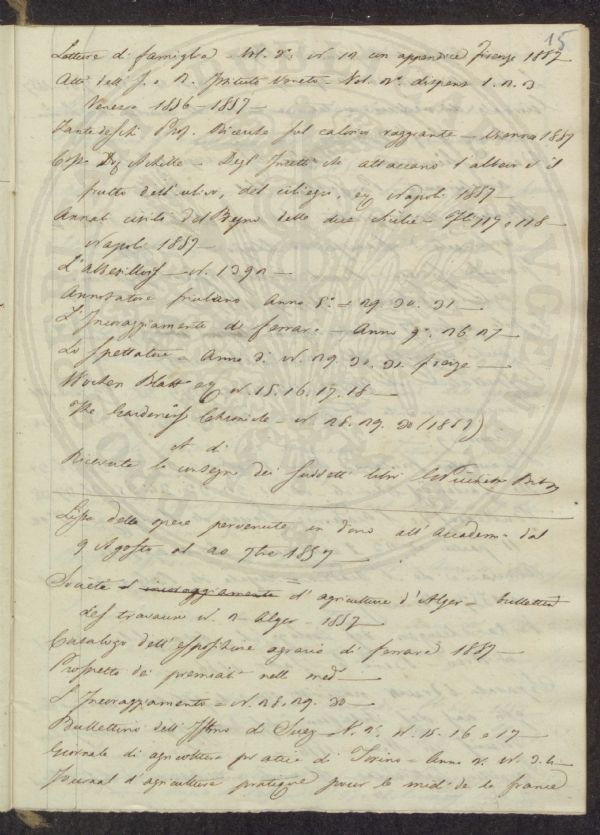 15
Letture di famiglia – Vol. 2° N. 12 con appendice Firenze 1857
Atti dell' I. e R. Istituto Veneto – Vol. 2° dispensa 1. 2. 3
Venezia 1856–1857 –
Zantedeschi Prof. Ricerche sul calorico raggiante – Vienna 1857
Costa Achille – Degl' Insetti che attaccano l'albero e il
frutto dell'ulivo, del ciliegio, ec. Napoli 1857 –
Annali civili del Regno delle due Sicilie – 117 e 118 –
Napoli 1857 –
N. 1392 –
Annotatore friulano Anno 5° – 29. 30. 31 –
L'Incoraggiamento di Ferrara – Anno 9° 26. 27 –
Lo Spettatore – Anno 3. N. 29. 30. 31. Firenze –
Wochen Blatt N. 15. 16. 17. 18 –
The Gardeners Chronicle – N. 28. 29. 30 (1857)
A di
Ricevute le consegne dei suddetti libri
Lista delle opere pervenute in dono all'Accademia dal
9 Agosto al 20 7bre 1857
Società d'agriculture d'Alger – bulletin
des travaux N. 2 – Alger 1857 –
Catalogo dell'esposizione agraria di Ferrara 1857 –
Prospetto dei premiati nella med.a –
L'Incoraggiamento – N. 28. 29. 30 –
Bullettino dell'Istmo di Suez – N. 15. 16 e 17 –
Giornale di agricoltura pratica di Torino – Anno 2. N. 3. 4 –
Journal d'agriculture pratique pour le midi de la France